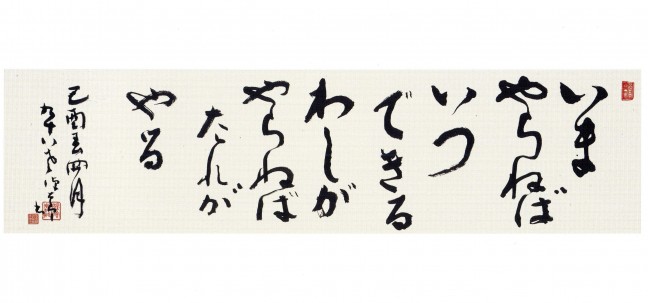 いま
やらねば
いつ
できる
わしが
やらねば
たれが
やる
己酉春四月
九十八才